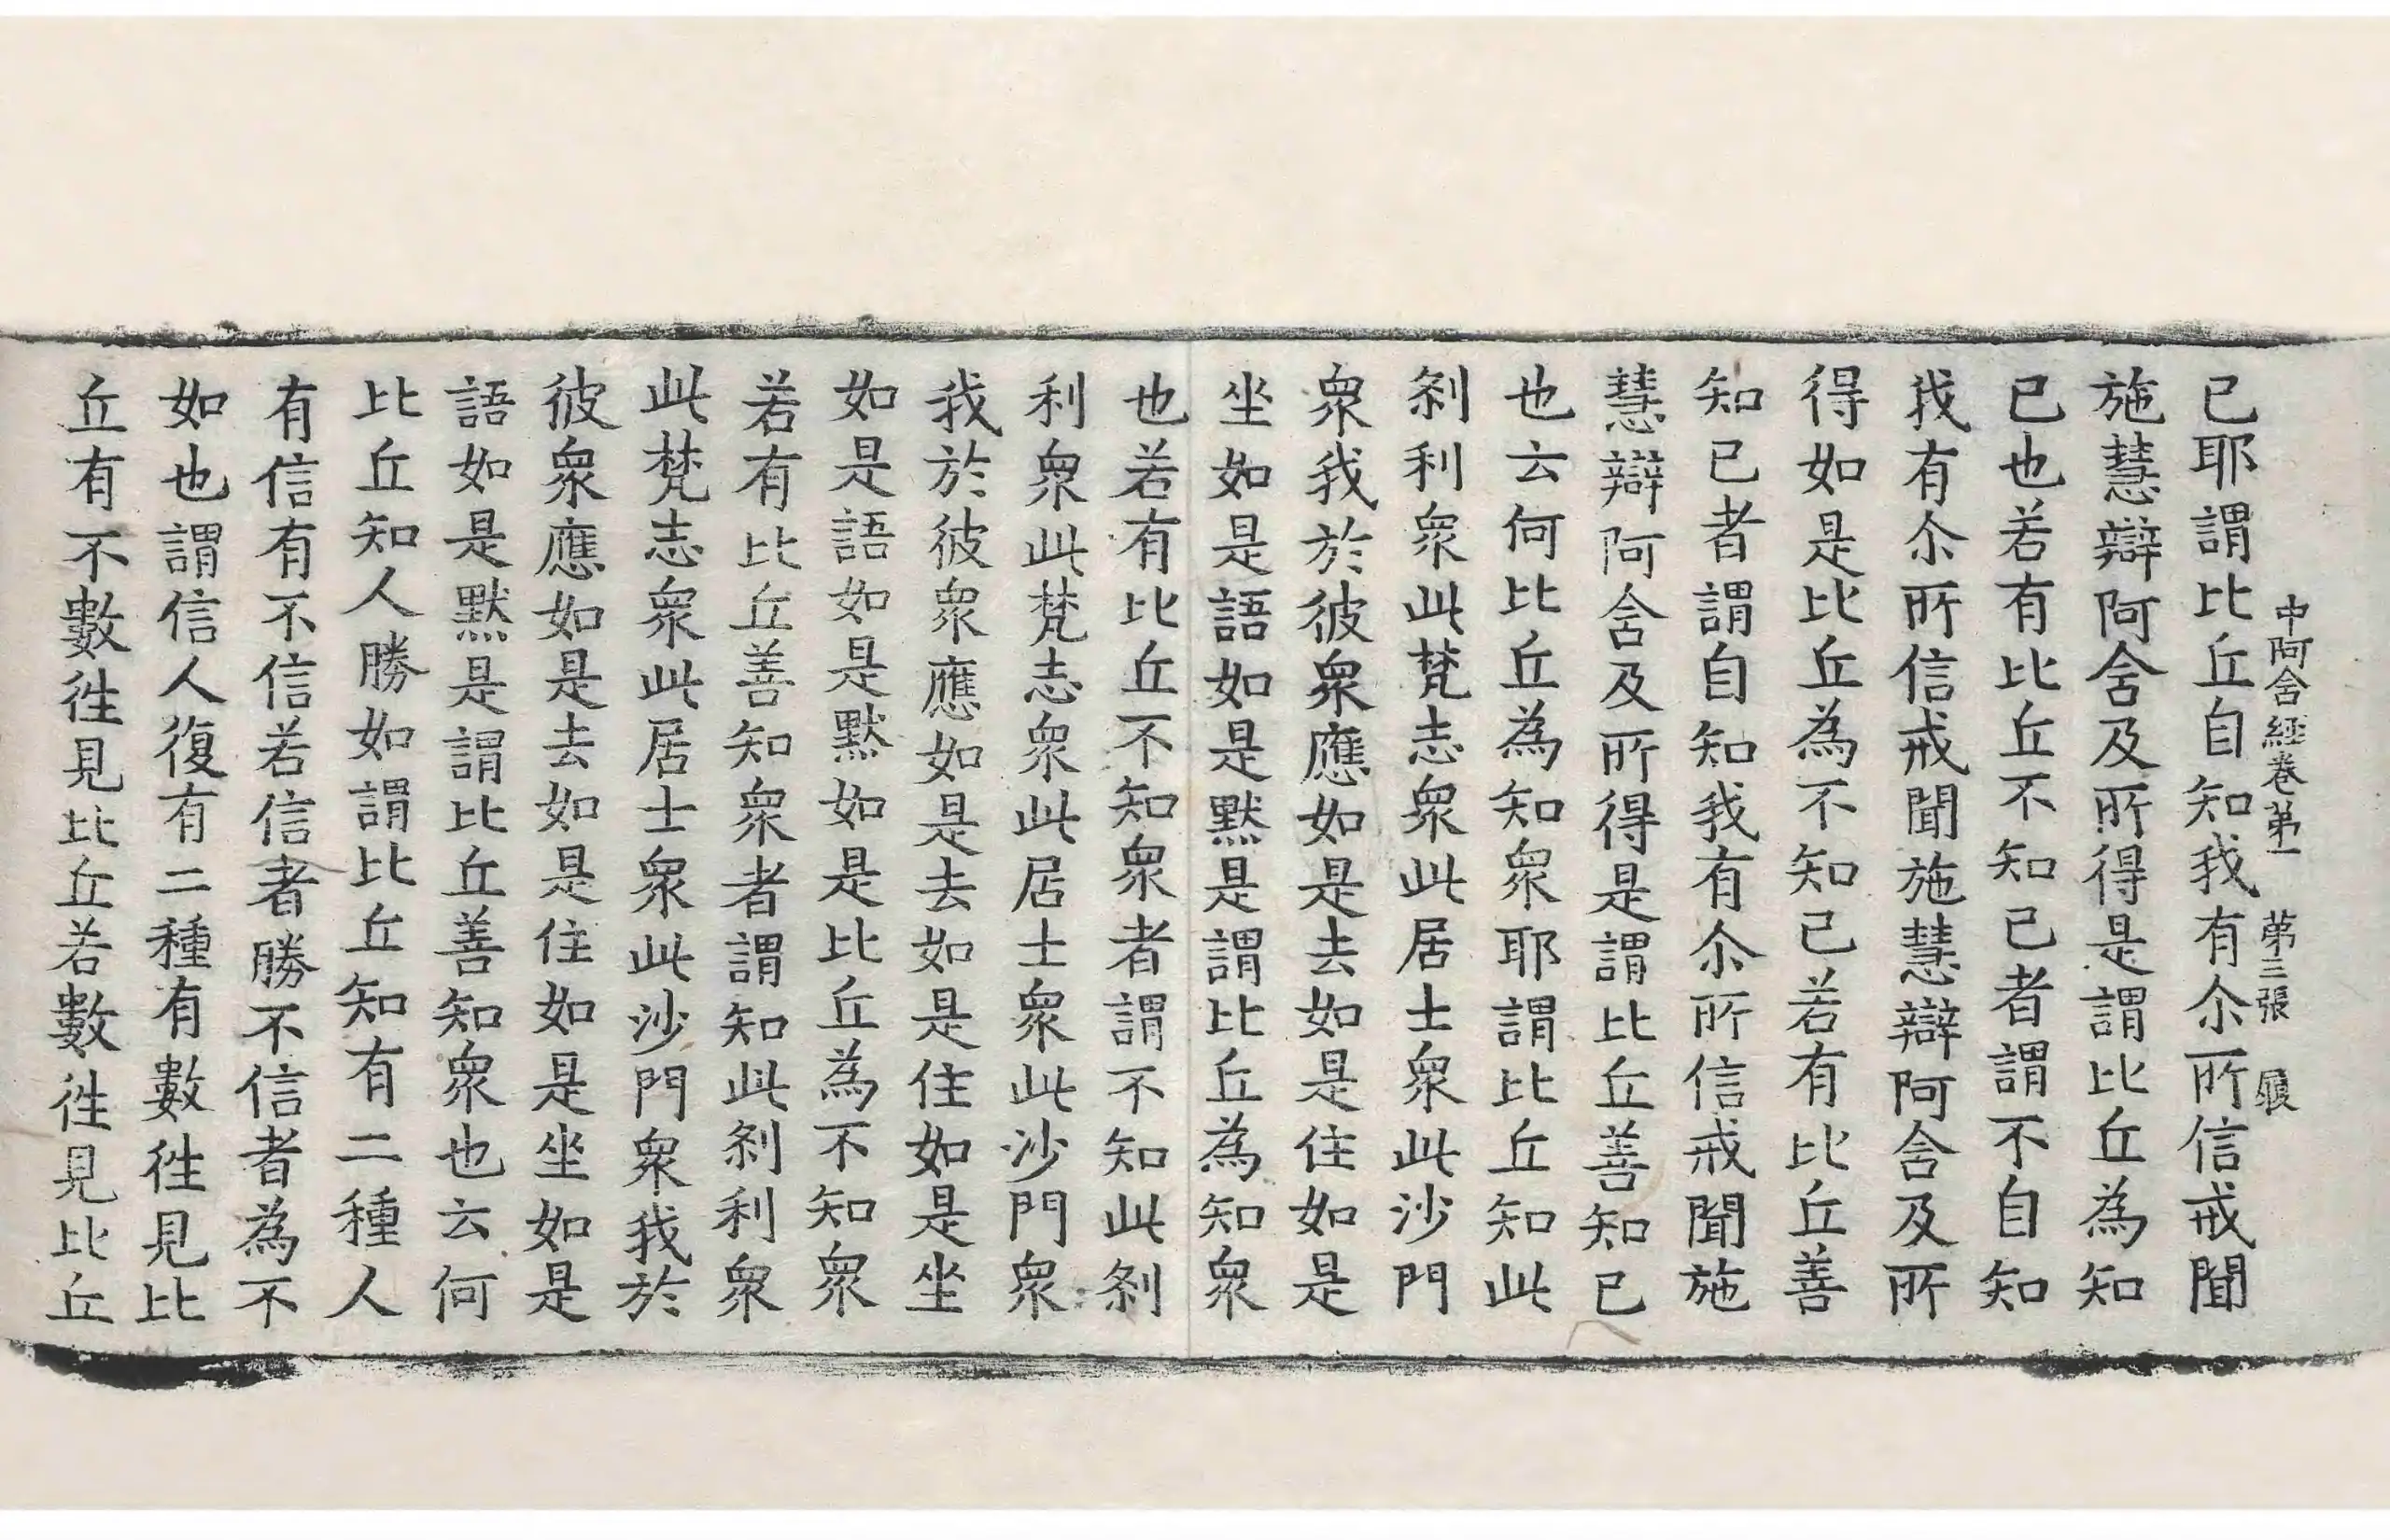 中阿含經卷第一　第三張　履
已耶謂比丘自知我有尒所信戒聞
施慧辯阿含及所得是謂比丘為知
已也若有比丘不知已者謂不自知
我有尒所信戒聞施慧辯阿含及所
得如是比丘為不知已若有比丘善
知已者謂自知我有尒所信戒聞施
慧辯阿含及所得是謂比丘善知已
也云何比丘為知衆耶謂比丘知此
刹利衆此梵志衆此居士衆此沙門
衆我於彼衆應如是去如是住如是
坐如是語如是默是謂比丘為知衆
也若有比丘不知衆者謂不知此刹
利衆此梵志衆此居士衆此沙門衆
我於彼衆應如是去如是住如是坐
如是語如是默如是比丘為不知衆
若有比丘善知衆者謂知此刹利衆
此梵志衆此居士衆此沙門衆我於
彼衆應如是去如是住如是坐如是
語如是默是謂比丘善知衆也云何
比丘知人勝如謂比丘知有二種人
有信有不信若信者勝不信者為不
如也謂信人復有二種有數徃見比
丘有不數徃見比丘若數徃見比丘